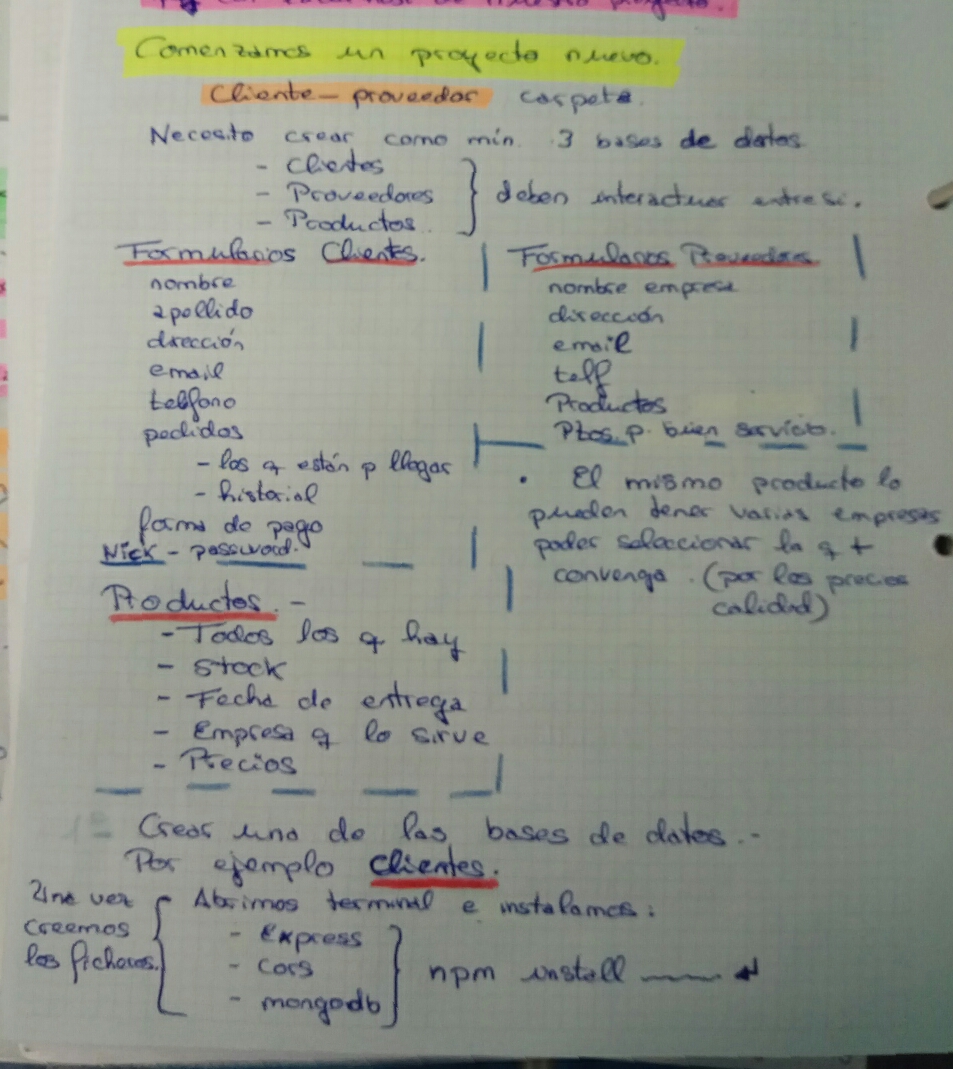 nuestro proyecto.
Comenzamos un proyecto nuevo.
Cliente - proveedor carpeta.
Necesito crear como mín. 3 bases de datos
- Clientes
- Proveedores
- Productos.
deben interactuar entre si.
Formularios Clients.
nombre
apellido
dirección
email
telfono
pedidos
- los q están p llegar
- historial
forma de pago
Nick - password.
Formularios Proveedores
nombre empresa
dirección
email
telf
Productos
Ptos p. bien servicio.
· El mismo producto lo
pueden tener varias empresas
poder seleccionar la q +
convenga. (por los precios
calidad)
Productos. -
- Todos los q hay
- Stock
- Fecha de entrega
- Empresa q lo sirve
- Precios
1º - Crear una de las bases de datos. -
Por ejemplo Clientes.
Una vez
creemos
los ficheros.
Abrimos terminal e instalamos:
- Express
- Cors
- mongodb
npm install —— ↵